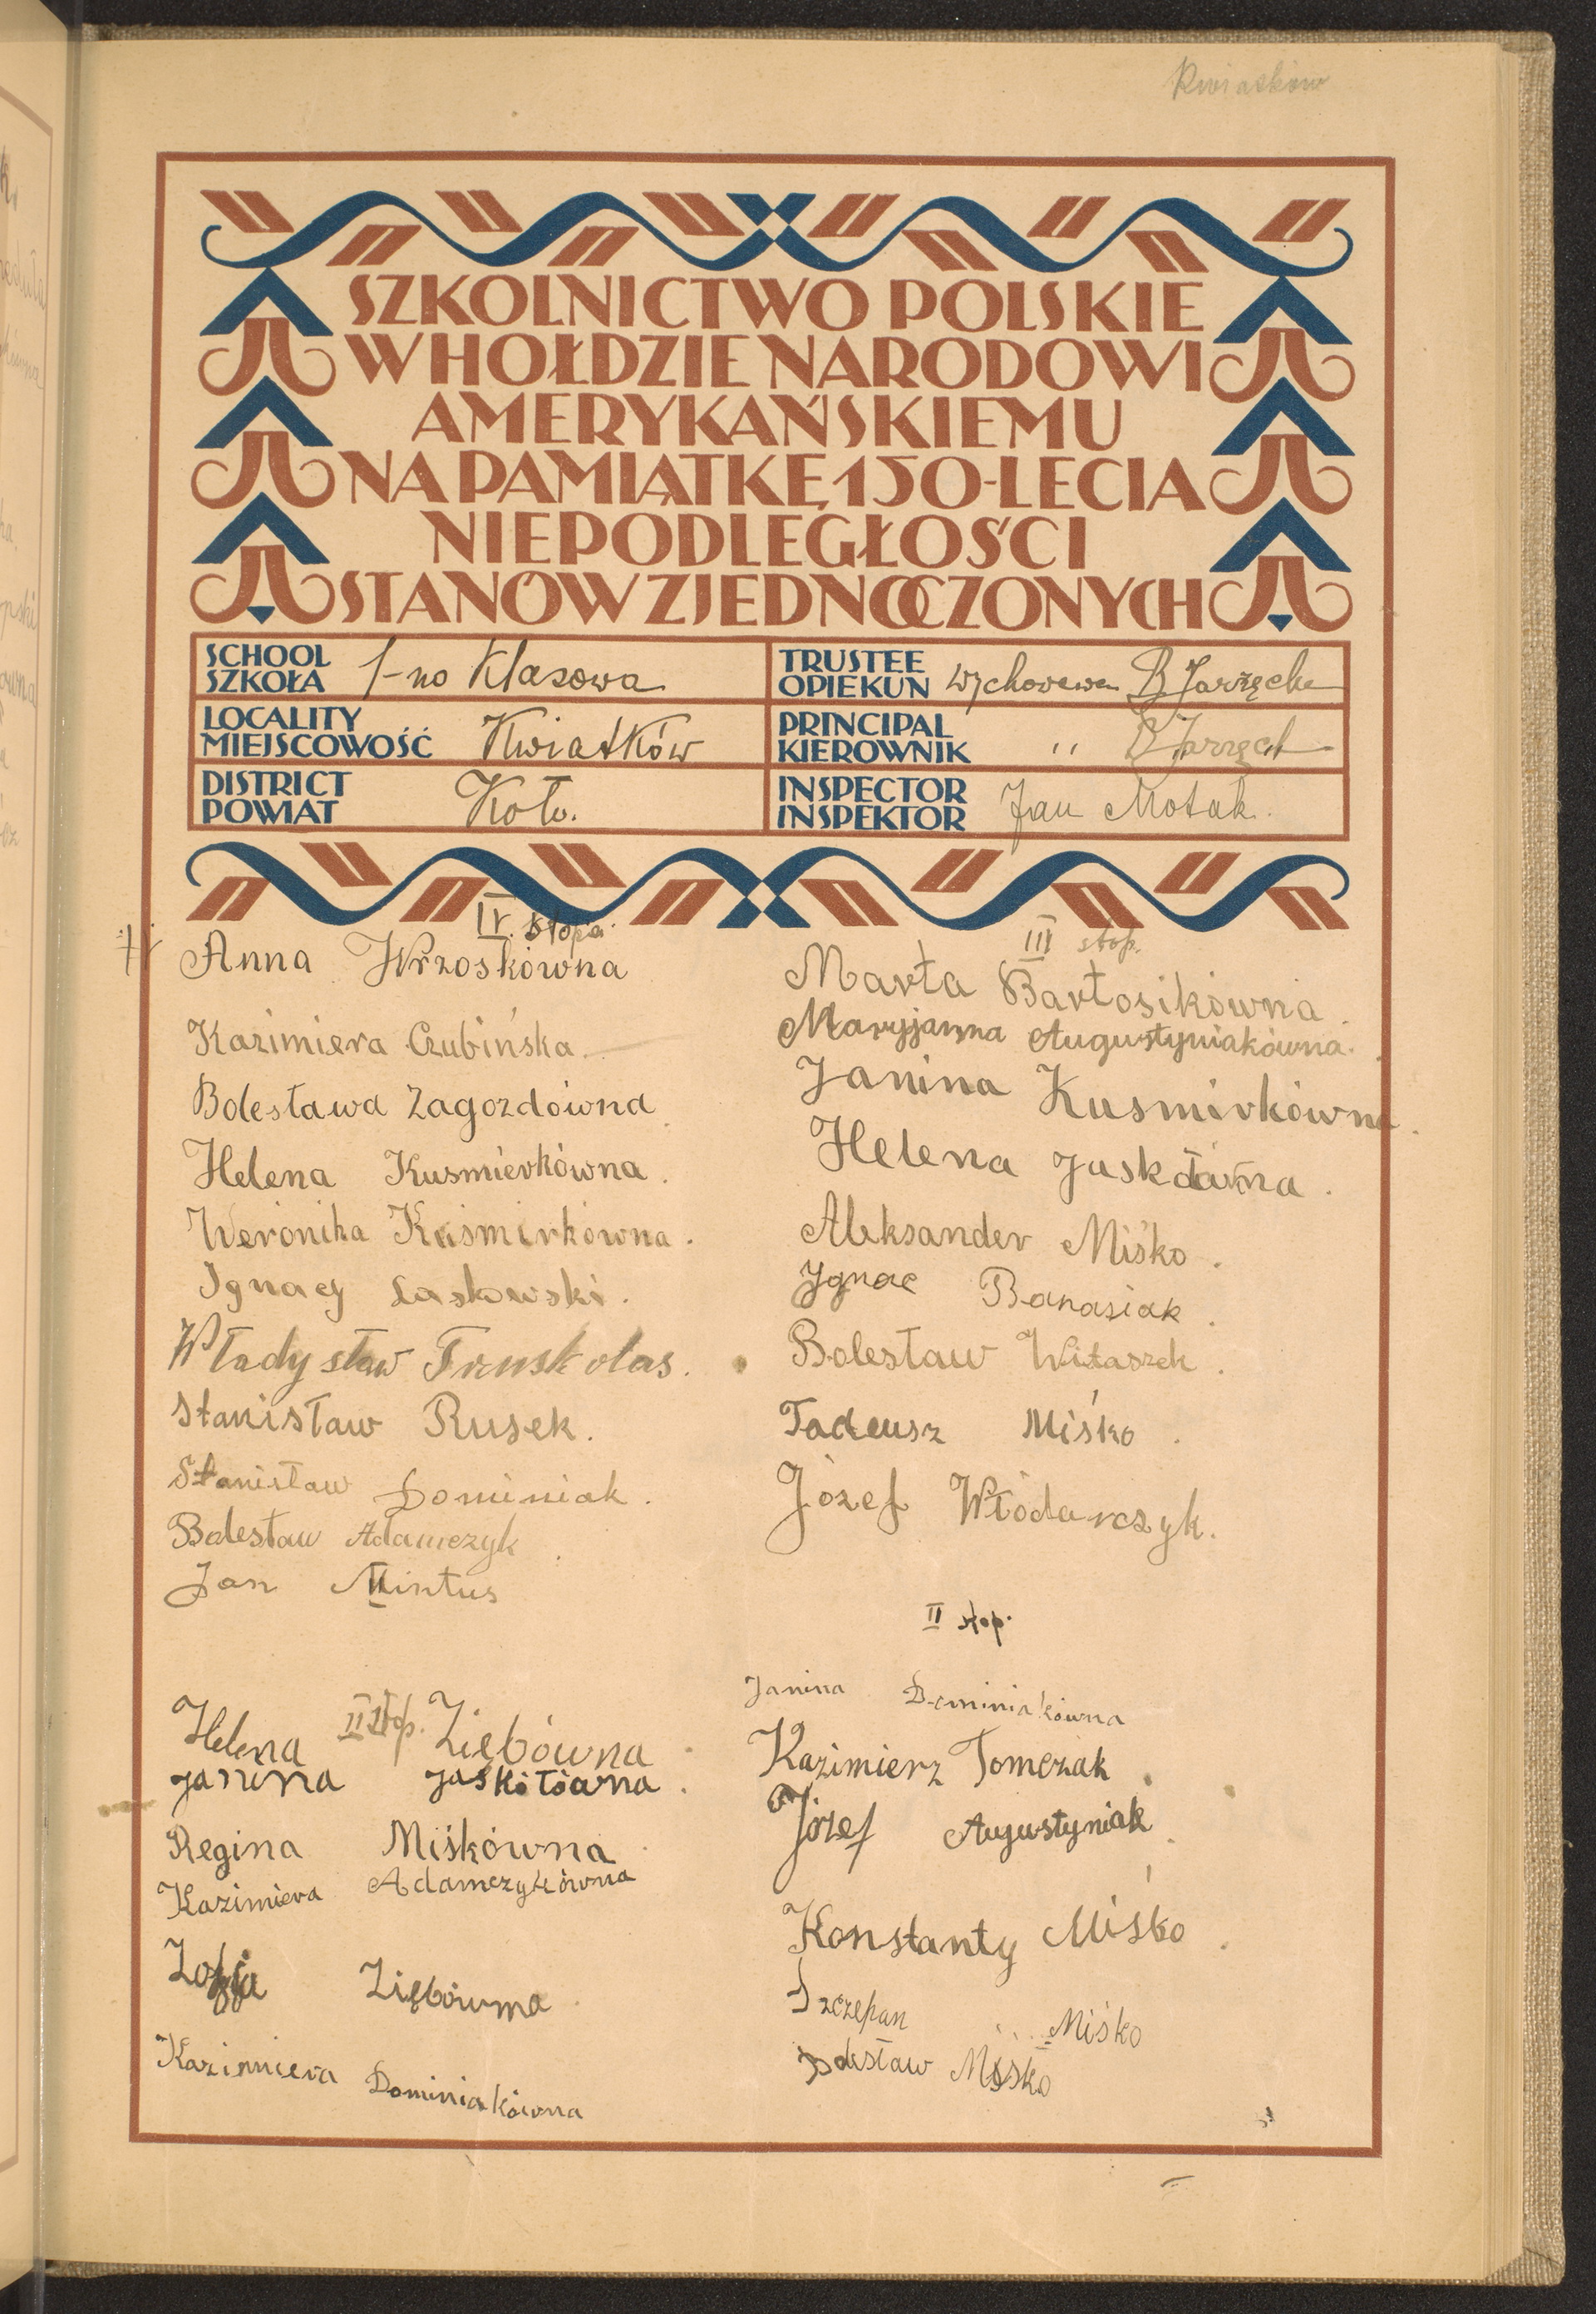 Kwiatków
SZKOLNICTWO POLSKIE
W HOŁDZIE NARODOWI
AMERYKAŃSKIEMU
NA PAMIĄTKĘ 150-LECIA
NIEPODLEGŁOŚCI
STANÓW ZJEDNOCZONYCH
SCHOOL
SZKOŁA 1-no Klasowa
TRUSTEE
OPIEKUN B Jarzęcka
LOCALITY
MIEJSCOWOŚĆ Kwiatków
PRINCIPAL
KIEROWNIK " 
DISTRICT
POWIAT Koło.
INSPECTOR
INSPEKTOR Jan Motak.
IV. stopa.
Anna Wrzoskówna
Kazimiera Czubińska
Bolesława Zagozdówna
Helena Kusmierkówna.
Weronika Kuśmirkówna.
Ignacy Laskowski.
Władysław Truskolas.
Stanisław Rusek.
Stanisław Dominiak.
Bolesław Adamczyk
Jan Mintus
III stop.
Marta Bartosikówna.
Maryjanna Augustyniakówna.
Janina Kusmirkówna.
Helena
Aleksander Miśko.
Ygnac Banasiak.
Bolesław Witaszek.
Tadeusz Miśko.
Józef Włódarczyk.
II stop.
Helena Ziębówna
Janina Jaskółówna.
Regina Miśkówna
Kazimiera Adamczykówna
Zofja Ziębówna
Kazimiera Dominiakówna
II stop.
Janina Dominiakówna
Kazimierz Tomczak.
Józef Augustyniak.
Konstanty Miśko.
Szczepan Miśko
Bolesław Miśko